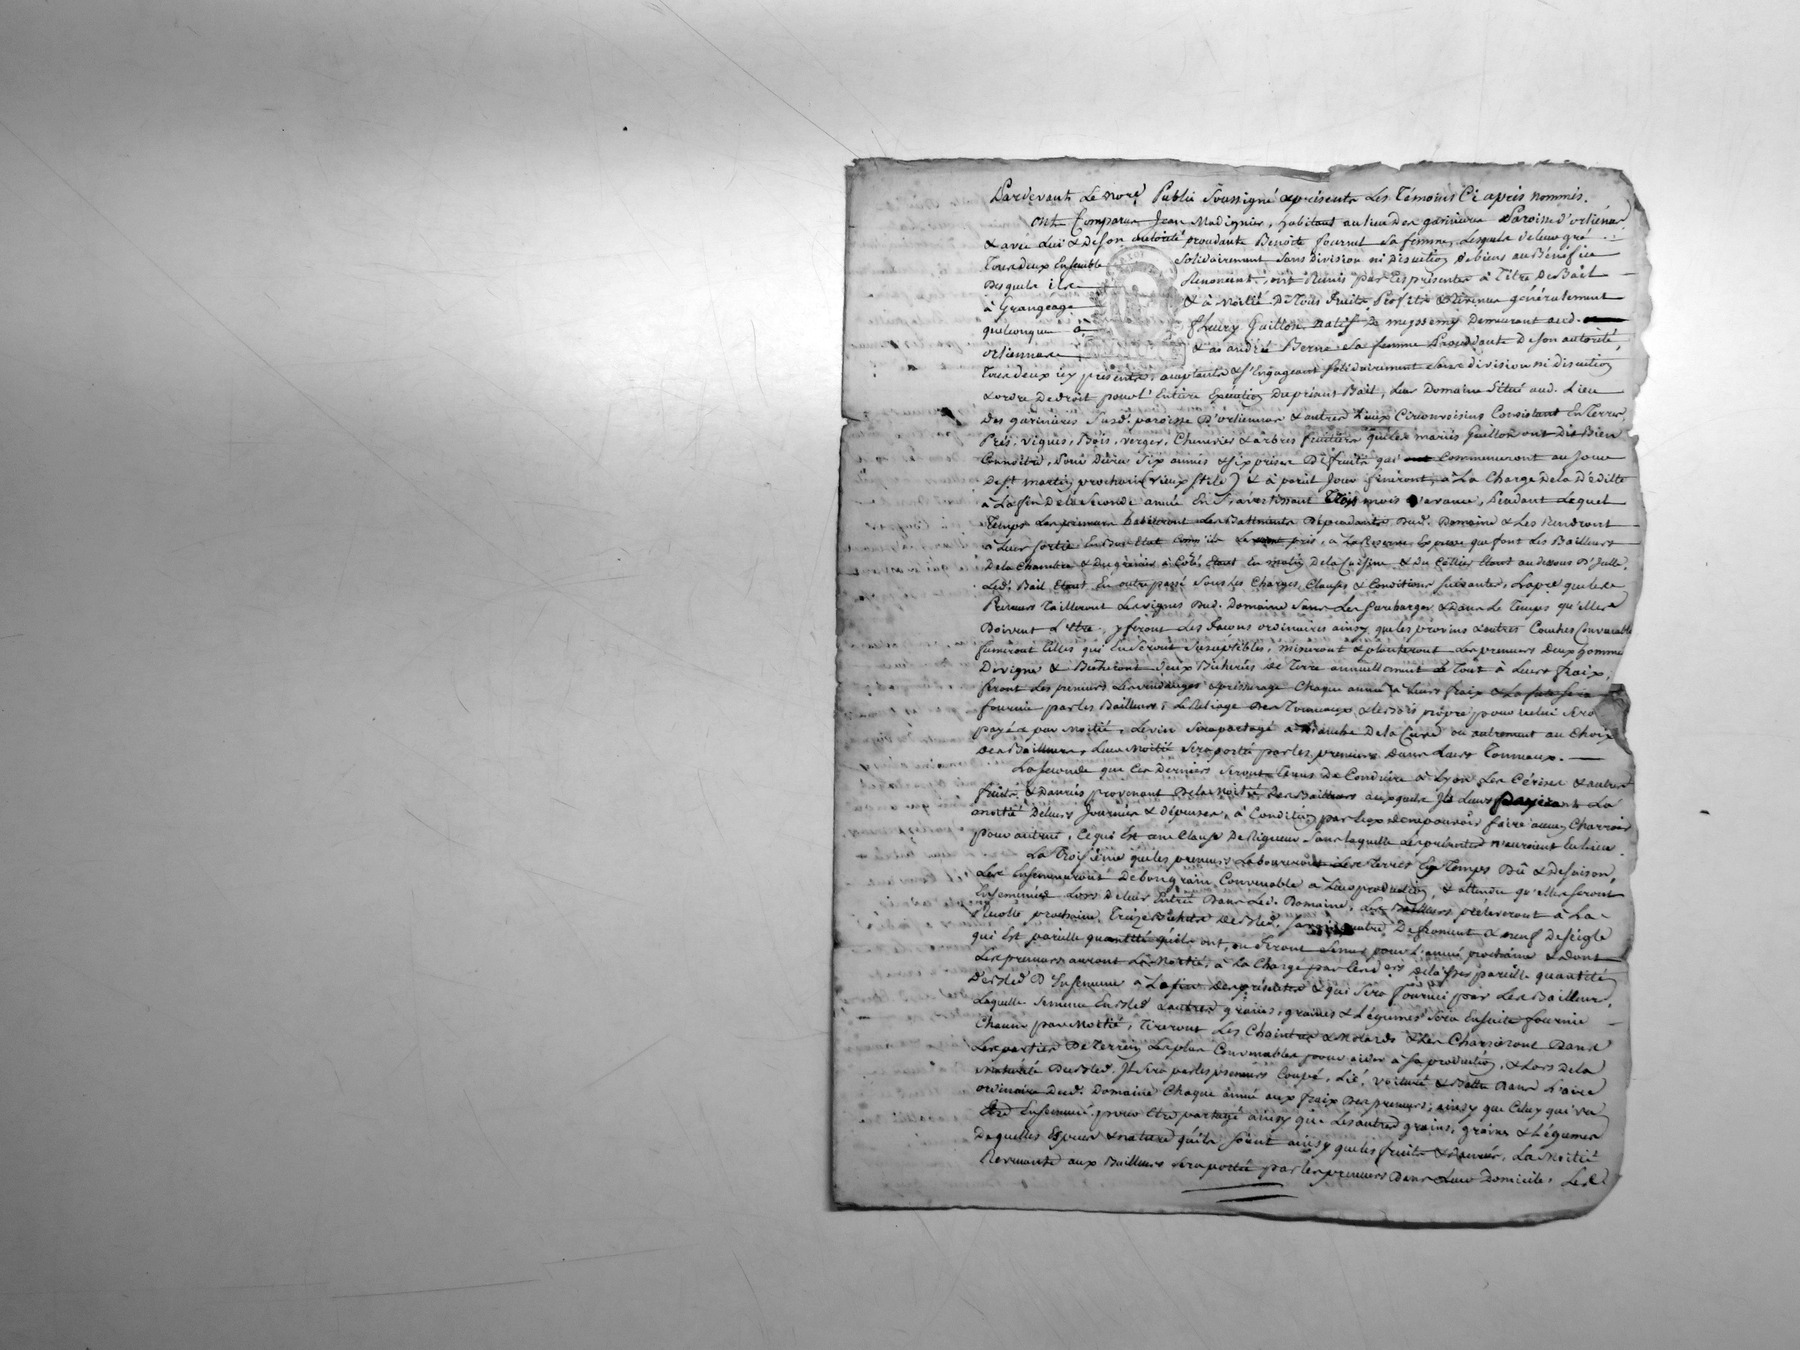 Pardevant Le nore Public Soussigné & présents Les Témoins Ci après nommés.
ont Comparus Jean Madignier, habitant au lieu des garinieres Paroisse d'orlienas
& avec Lui & de son autorité procedante Benoite fournel sa femme, Lesquels de leur gré
Tous deux Ensemble Solidairement Sans division ni Discution De biens au Bénéfice
Desquels ils Renoncent, ont Remis par Ces présentes à Titre De Bail
à Grangeage & à Moitié De Tous fruits Profits & Revenus généralement
quelconques à fleury Guillon natif de messemy Demeurant aud.
orliennas & à andrée Berne sa femme Procedante De son autorité,
Tous deux icy présents, acceptants & S'Engageant Solidairement Sans division ni discution
& ordre De droit pour l'Entiere Exécution Du présent Bail, Leur Domaine Situé aud. Lieu
Des garinieres Susd. paroisse D'orliennas & autres Lieux Circonvoisins Consistant En Terres
Prés, vignes, Bois, verger, Chenevier & arbres fruitiers que les mariés Guillon ont dit Bien
Connoitre, Pour Durer Six années & Six prises De fruits qui Commenceront au Jour
De St martin prochain (vieux Stile) & à pareil Jour finiront, à La Charge De la Dédite
à La fin De la Seconde année En S'avertissant Trois mois D'avance, Pendant Lequel
Temps Les preneurs habiteront Les Battiments Dépendants Dud. Domaine & Les Rendront
à Leur Sortie En Bon Etat Comme ils Le pris, à La Reserve Expresse que font Les Bailleurs
De la Chambre & Du grenier à Coté, Etant En matin De la Cuisine & Du Cellier Etant au dessous D'Icelle,
Led. Bail Etant En outre passé Sous Les Charges, Clauses & Conditions Suivantes, La pre que les
Preneurs Tailleront Les vignes Dud. Domaine Sans Les Surcharger & Dans Le Temps qu'elles
Doivent L'Etre, y feront Les façons ordinaires ainsy que les provins & autres Couches Convenables
fumeront Celles qui En Seront Susceptibles, mineront & planteront Les preneurs Deux hommées
De vigne & Bêcheront Deux Bicherées de Terre annuellement Le Tout à Leurs fraix,
feront Les preneurs Les vendanges & pressurage Chaque année à Leurs fraix &
fournie par les Bailleurs; Le Reliage Des Tonneaux & Le Bois propre pour icelui Sera
payé par Moitié, Le vin Sera partagé à L'anche De la Cuve ou autrement au Choix
Des Bailleurs, Leur Moitié Sera portée par les preneurs Dans Leurs Tonneaux.
La seconde que Ces Derniers Seront Tenus De Conduire à Lyon Les Cérises & autres
fruits & Danrées provenant De la Moitié Des Bailleurs auxquels Ils Leurs payeront La
moitié De leurs Journées & dépenses, à Condition par Eux De ne pouvoir faire aucun Charrois
pour autrui, Ce qui Est une Clause De Rigueur Sans laquelle Les présentes n'auroient Eu Lieu.
La Troisième que les preneurs Laboureront Les Terres En Temps Dû & De saison
Les Ensemenceront De bon grain Convenable à Leur production & attendu qu'elles Seront
Ensemencées Lors De leur Entrée Dans Led. Domaine, Les Bailleurs préleveront à La
Récolte prochaine, Treize Bichets de Bled, Savoir, quatre De froment & neuf De seigle
qui Est pareille quantité qu'ils ont, ou feront Semer pour L'année prochaine & dont
Les preneurs auront La Moitié, à La Charge par Ces ders de laisser pareille quantité
De Bled D'Ensemence à La fin Des présentes & qui Sera fourni par Les Bailleurs,
Laquelle Semence En Bled & autres grains, graines & Légumes Sera Ensuite fournie
Chacun par Moitié, Tireront Les Chaintres & Molards & Les Charrieront Dans
Les parties De Terrein Les plus Convenables pour aider à Sa production, & Lors De la
Maturité Du Bled, Il Sera par les preneurs Coupé, Lié, voituré & Battu Dans L'aire
ordinaire Dud. Domaine Chaque année aux fraix Des preneurs, ainsy que Celuy qui va
Etre Ensemencé, pour Etre partagé ainsy que Les autres grains, graines & Légumes
De quelles Especes & nature qu'ils Soient ainsy que les fruits & Danrées, La Moitié
Revenante aux Bailleurs Sera portée par les preneurs Dans Leur Domicile, Les